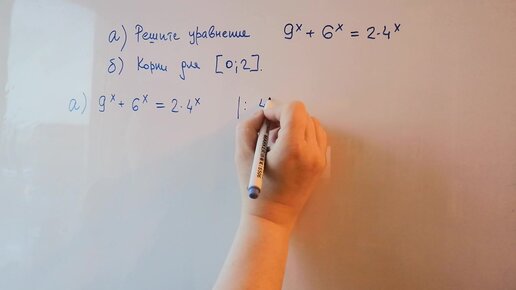 а) Решите уравнение 9ˣ + 6ˣ = 2·4ˣ
б) Корни для [0;2].
а) 9ˣ + 6ˣ = 2·4ˣ |: 4ˣ